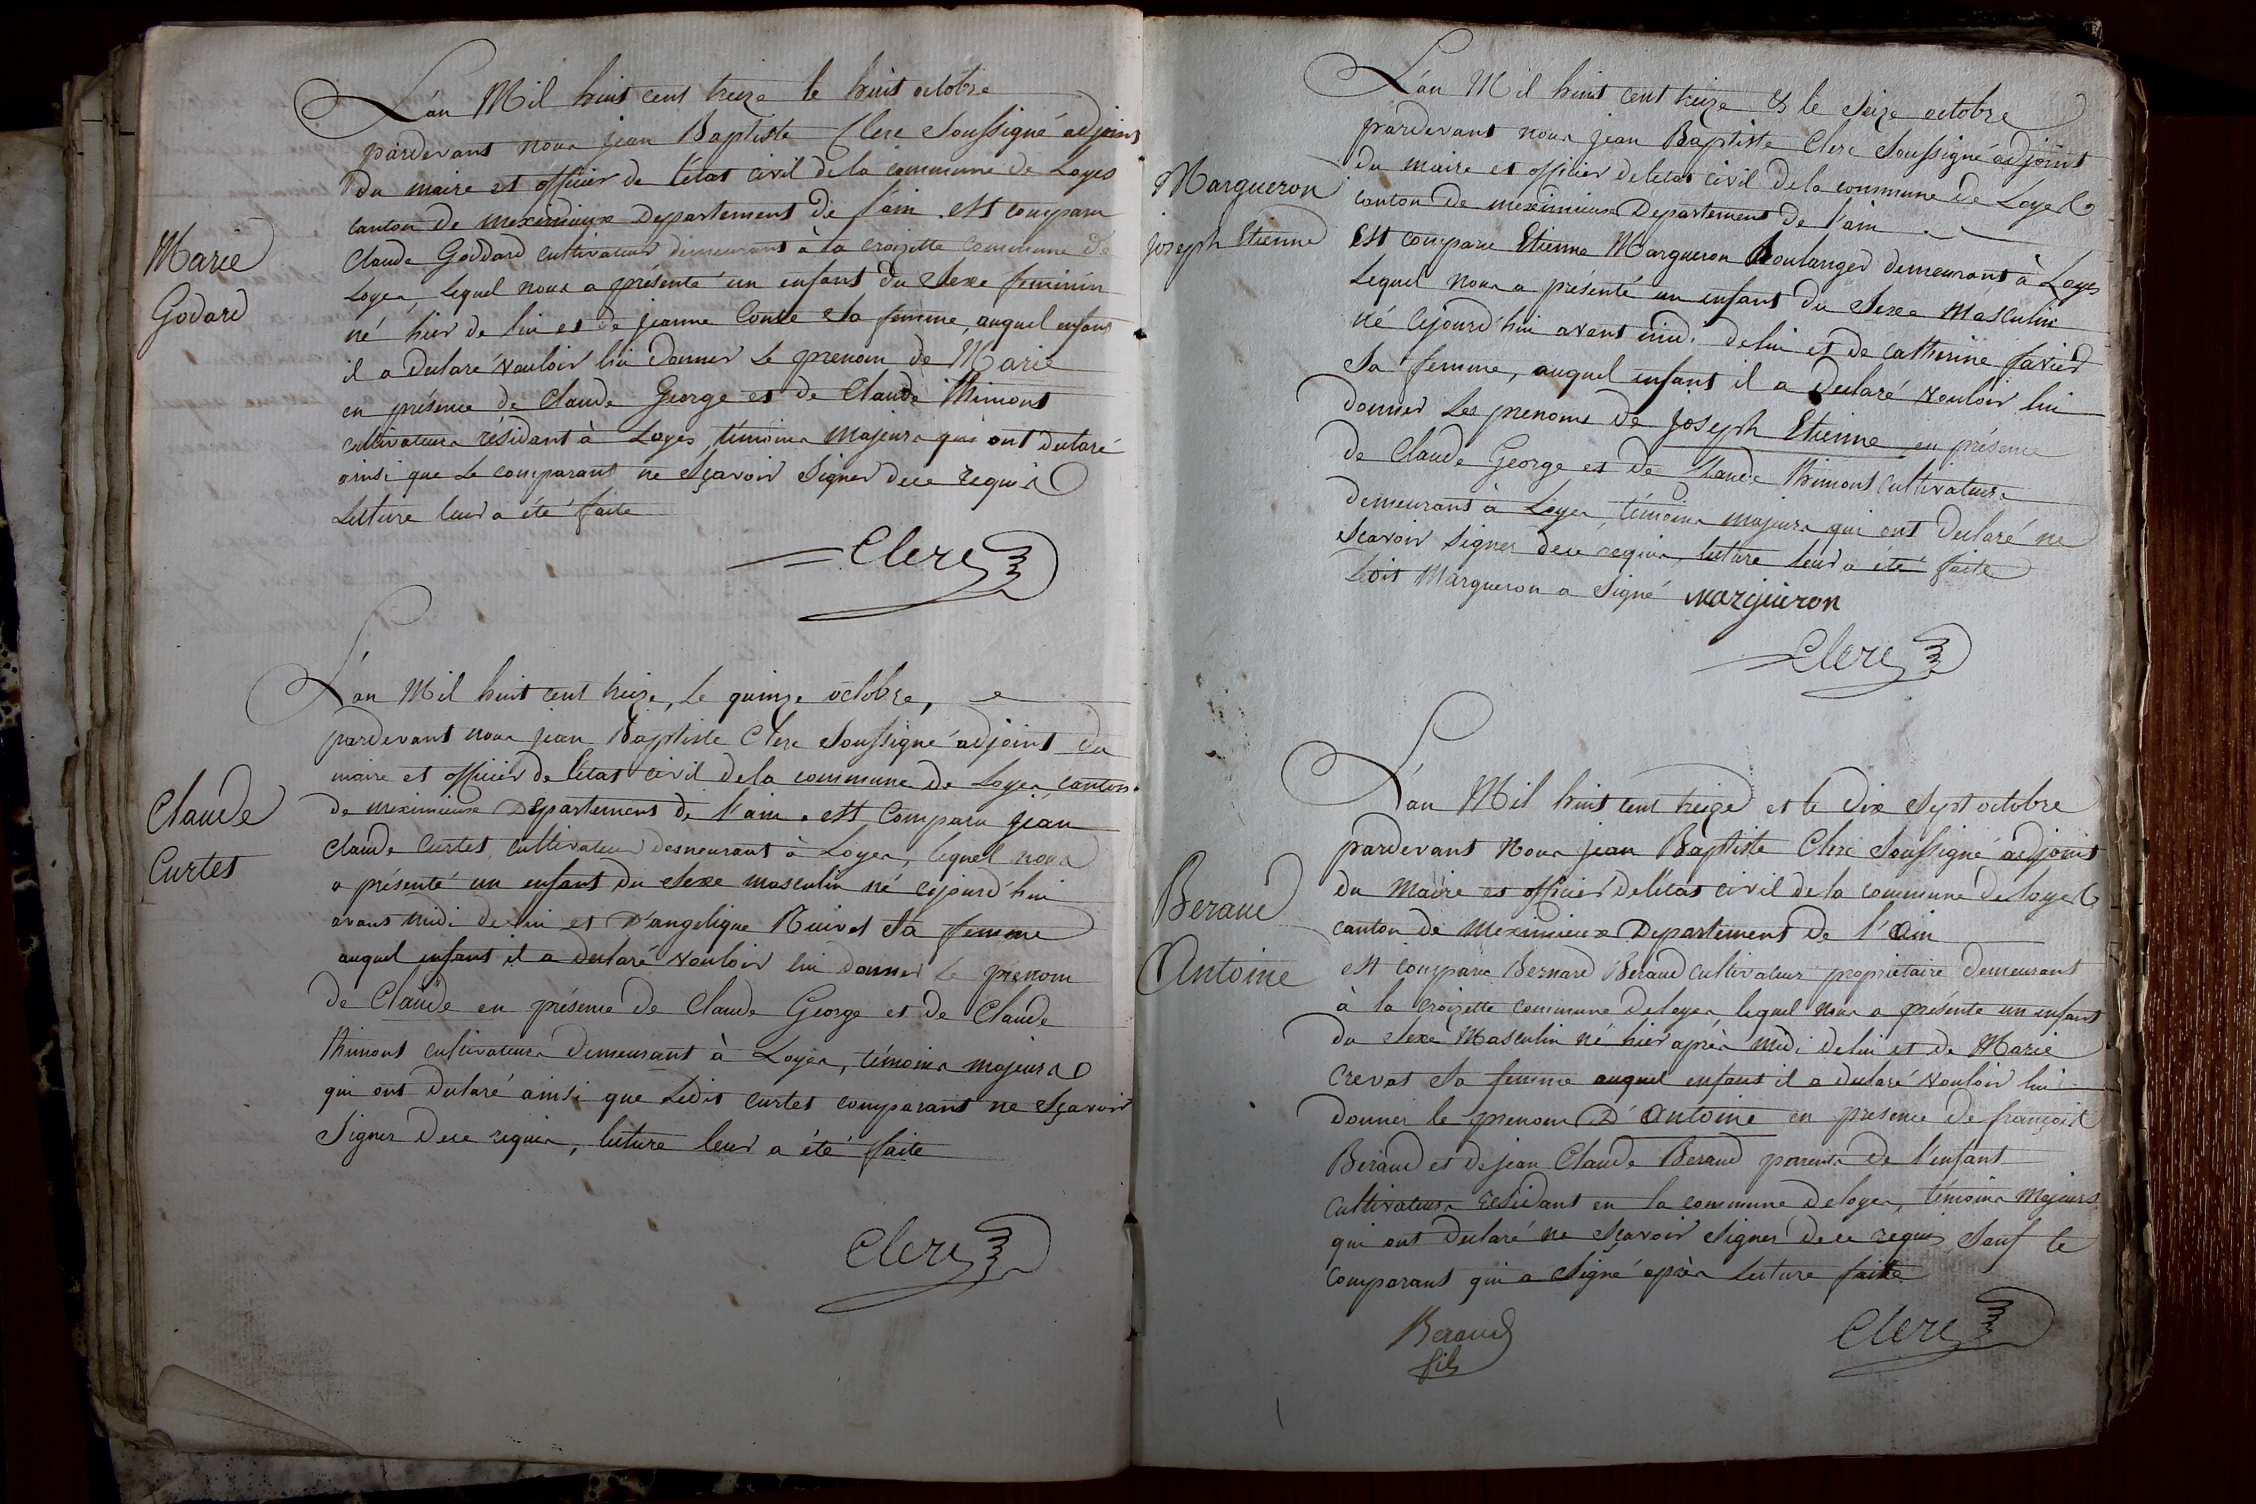 L'an Mil huit cent treize le huit octobre
pardevant nous jean Baptiste Clerc Soussigné adjoint
du maire et officier de l'état civil de la commune de Loyes
canton de meximieux Departement de l'ain. est comparu
Claude Goddard cultivateur demeurant à la croizette commune de
Loyes, lequel nous a présenté un enfant du Sexe feminin
né hier de lui et de jeanne Conte Sa femme, auquel enfant
il a declaré vouloir lui donner le prenom de Marie
en présence de Claude George et de Claude Thimont
cultivateurs résidant à Loyes témoins majeurs qui ont declaré
ainsi que le comparant ne Sçavoir Signer de ce requis
Lecture leur a été faite
Clerc
Marie
Godard
L'an Mil huit cent treize, le quinze octobre,
pardevant nous jean Baptiste Clerc Soussigné adjoint du
maire et officier de l'état civil de la commune de Loyes, canton
de meximieux Departement de l'ain. est Comparu jean
Claude Curtet cultivateur demeurant à Loyes, lequel nous
a présenté un enfant du Sexe masculin né cejourd'hui
avant midi de lui et D'angelique Ruivet Sa femme
auquel enfant il a declaré vouloir lui donner le prenom
de Claude en présence de Claude George et de Claude
Thimont cultivateurs demeurant à Loyes, témoins majeurs
qui ont declaré ainsi que Ledit Curtet comparant ne Sçavoir
Signer de ce requis, lecture leur a été faite
Clerc
Claude
Curtet
L'an Mil huit cent treize et le Seize octobre
pardevant nous jean Baptiste Clerc Soussigné adjoint
du maire et officier de l'etat civil de la commune de Loyes
canton de meximieux Departement de l'ain
Est comparu Etienne Margueron Boulanger demeurant à Loyes
Lequel nous a présenté un enfant du Sexe Masculin
né cejourd'hui avant midi de lui et de Catherine favier
Sa femme, auquel enfant il a declaré vouloir lui
donner Les prenoms de Joseph Etienne en présence
de Claude George et de Claude Thimont cultivateurs
demeurant à Loyes, témoins majeurs qui ont declaré ne
Sçavoir Signer de ce requis, lecture leur a été faite
Ledit Margueron a Signé margueron
Clerc
Margueron
joseph Etienne
L'an Mil huit cent treize et le dix Sept octobre
pardevant Nous jean Baptiste Clerc Soussigné adjoint
du Maire et officier de l'état civil de la commune de Loyes
canton de Meximieux Departement de l'Ain
est comparu Bernard Beraud cultivateur propriétaire demeurant
à la croizette commune de loyes lequel nous a présenté un enfant
du Sexe Masculin né hier après midi de lui et de Marie
Crevat Sa femme auquel enfant il a declaré vouloir lui
donner le prenom D'Antoine en presence de françois
Beraud et de jean Claude Beraud parents de l'enfant
cultivateurs résidant en la commune de loyes, témoins Majeurs
qui ont declaré ne Sçavoir Signer de ce requis Sauf le
comparant qui a Signé après Lecture faite
Beraud
fils
Clerc
Beraud
Antoine